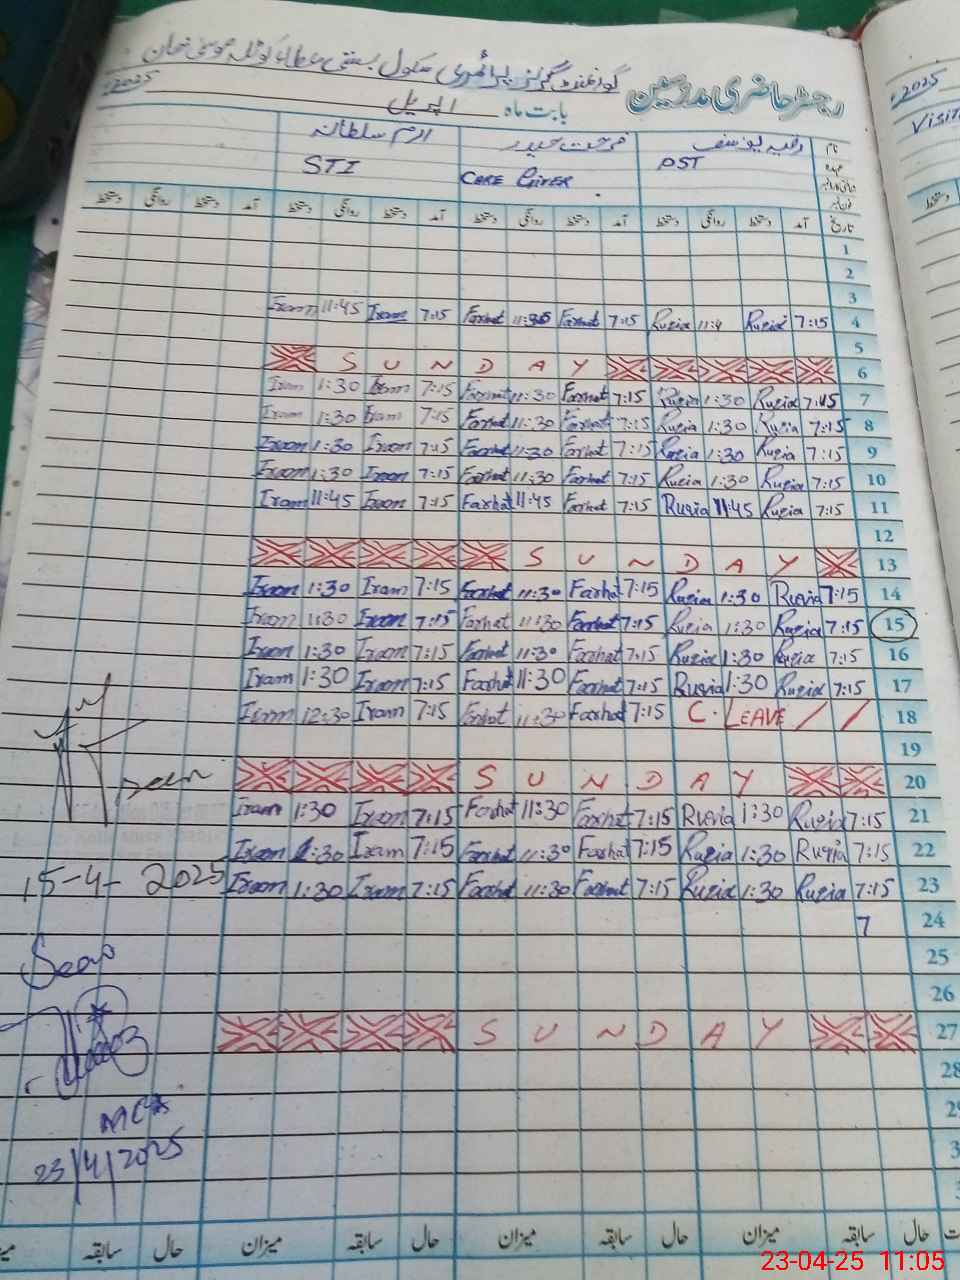 رجسٹر حاضری مدرسین گورنمنٹ گرلز پرائمری سکول بستی سلطان کوٹلہ موسیٰ خان
بابت ماہ اپریل 2025
نام رقیہ یوسف فرحت حیدر ارم سلطانہ
عہدہ PST CARE GIVER STI
تاریخ آمد دستخط روانگی دستخط آمد دستخط روانگی دستخط آمد دستخط روانگی دستخط آمد دستخط روانگی دستخط
1
2
3
Iram 11:45 Iram 7:15 Farhat 11:30 Farhat 7:15 Ruqia 11:4 Ruqia 7:15 4
5
SUNDAY 6
Iram 1:30 Iram 7:15 Farhat 11:30 Farhat 7:15 Ruqia 1:30 Ruqia 7:15 7
Iram 1:30 Iram 7:15 Farhat 11:30 Farhat 7:15 Ruqia 1:30 Ruqia 7:15 8
Iram 1:30 Iram 7:15 Farhat 11:30 Farhat 7:15 Ruqia 1:30 Ruqia 7:15 9
Iram 1:30 Iram 7:15 Farhat 11:30 Farhat 7:15 Ruqia 1:30 Ruqia 7:15 10
Iram 11:45 Iram 7:15 Farhat 11:45 Farhat 7:15 Ruqia 11:45 Ruqia 7:15 11
12
SUNDAY 13
Iram 1:30 Iram 7:15 Farhat 11:30 Farhat 7:15 Ruqia 1:30 Ruqia 7:15 14
Iram 1:30 Iram 7:15 Farhat 11:30 Farhat 7:15 Ruqia 1:30 Ruqia 7:15 15
Iram 1:30 Iram 7:15 Farhat 11:30 Farhat 7:15 Ruqia 1:30 Ruqia 7:15 16
Iram 1:30 Iram 7:15 Farhat 11:30 Farhat 7:15 Ruqia 1:30 Ruqia 7:15 17
Iram 12:30 Iram 7:15 Farhat 11:30 Farhat 7:15 C. LEAVE / / 18
19
SUNDAY 20
Iram 1:30 Iram 7:15 Farhat 11:30 Farhat 7:15 Ruqia 1:30 Ruqia 7:15 21
Iram 1:30 Iram 7:15 Farhat 11:30 Farhat 7:15 Ruqia 1:30 Ruqia 7:15 22
15-4-2025 Iram 1:30 Iram 7:15 Farhat 11:30 Farhat 7:15 Ruqia 1:30 Ruqia 7:15 23
7 24
25
Seen
26
SUNDAY 27
28
MCA
23/4/2025
حال سابقہ میزان حال سابقہ میزان حال سابقہ میزان حال سابقہ
2025
23-04-25 11:05